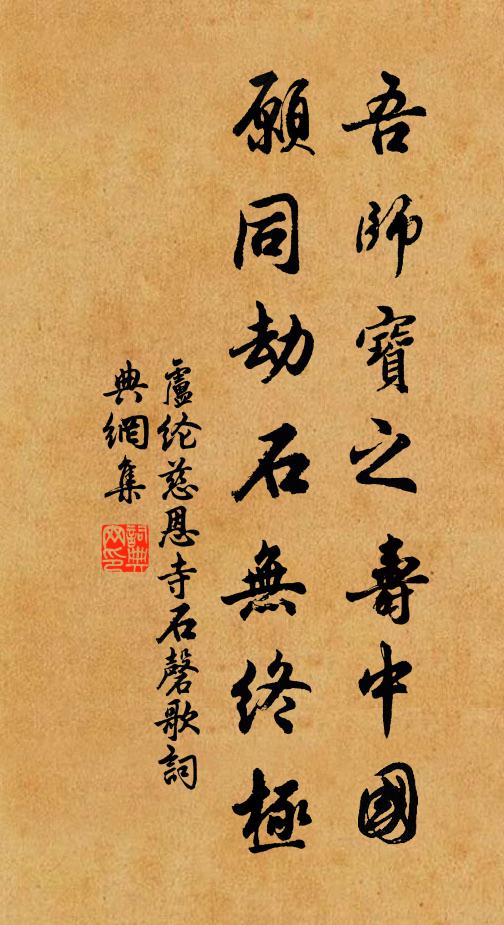 吾師寶之壽中國
願同劫石無終極
盧纶慈恩寺石磬歌詞
典網集
詞典网印